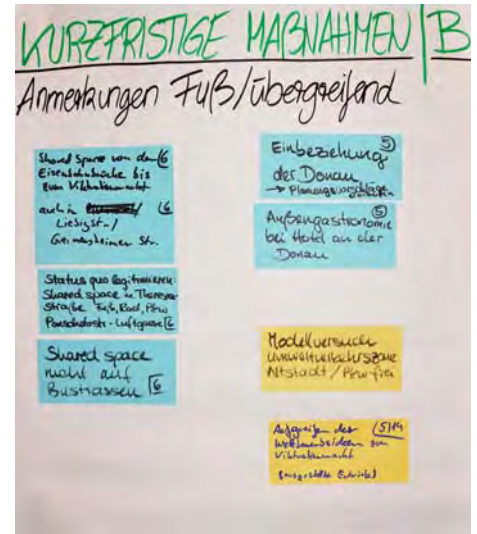 KURZFRISTIGE MAßNAHMEN | B
Anmerkungen Fuß/übergreifend
Shared Space von der (6
Eisenbahnbrücke bis
zum Viktualienmarkt
auch in / (6
Liebigstr./
Germersheimer Str.
Status quo legitimieren:
Shared space in Theresien-
straße Fuß, Rad, Pkw
- Luftgasse [6
Shared space
nicht auf
Bustrassen [6
Einbeziehung 5)
der Donau
→ Planungsvorschläge
Außengastronomie 5)
bei Hotel an der
Donau
Modellversuche
Umweltverkehrszone
Altstadt / Pkw-frei
Aufgreifen der (5)14
Wettbewerbsideen zum
Viktualienmarkt
(ausgestellte Entwürfe)